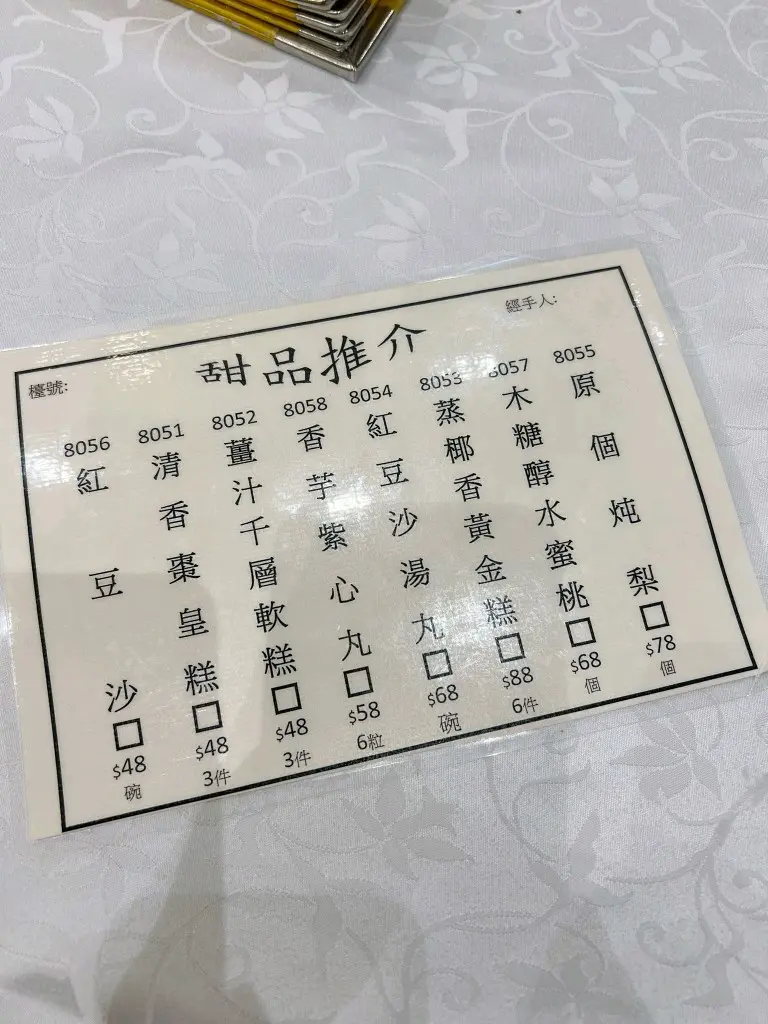 經手人:
甜品推介
檯號:
8055
原個炖梨
□
$78
個
8057
木糖醇水蜜桃
□
$68
個
8053
蒸椰香黃金糕
□
$88
6件
8054
紅豆沙湯丸
□
$68
碗
8058
香芋紫心丸
□
$58
6粒
8052
薑汁千層軟糕
□
$48
3件
8051
清香棗皇糕
□
$48
3件
8056
紅豆沙
□
$48
碗